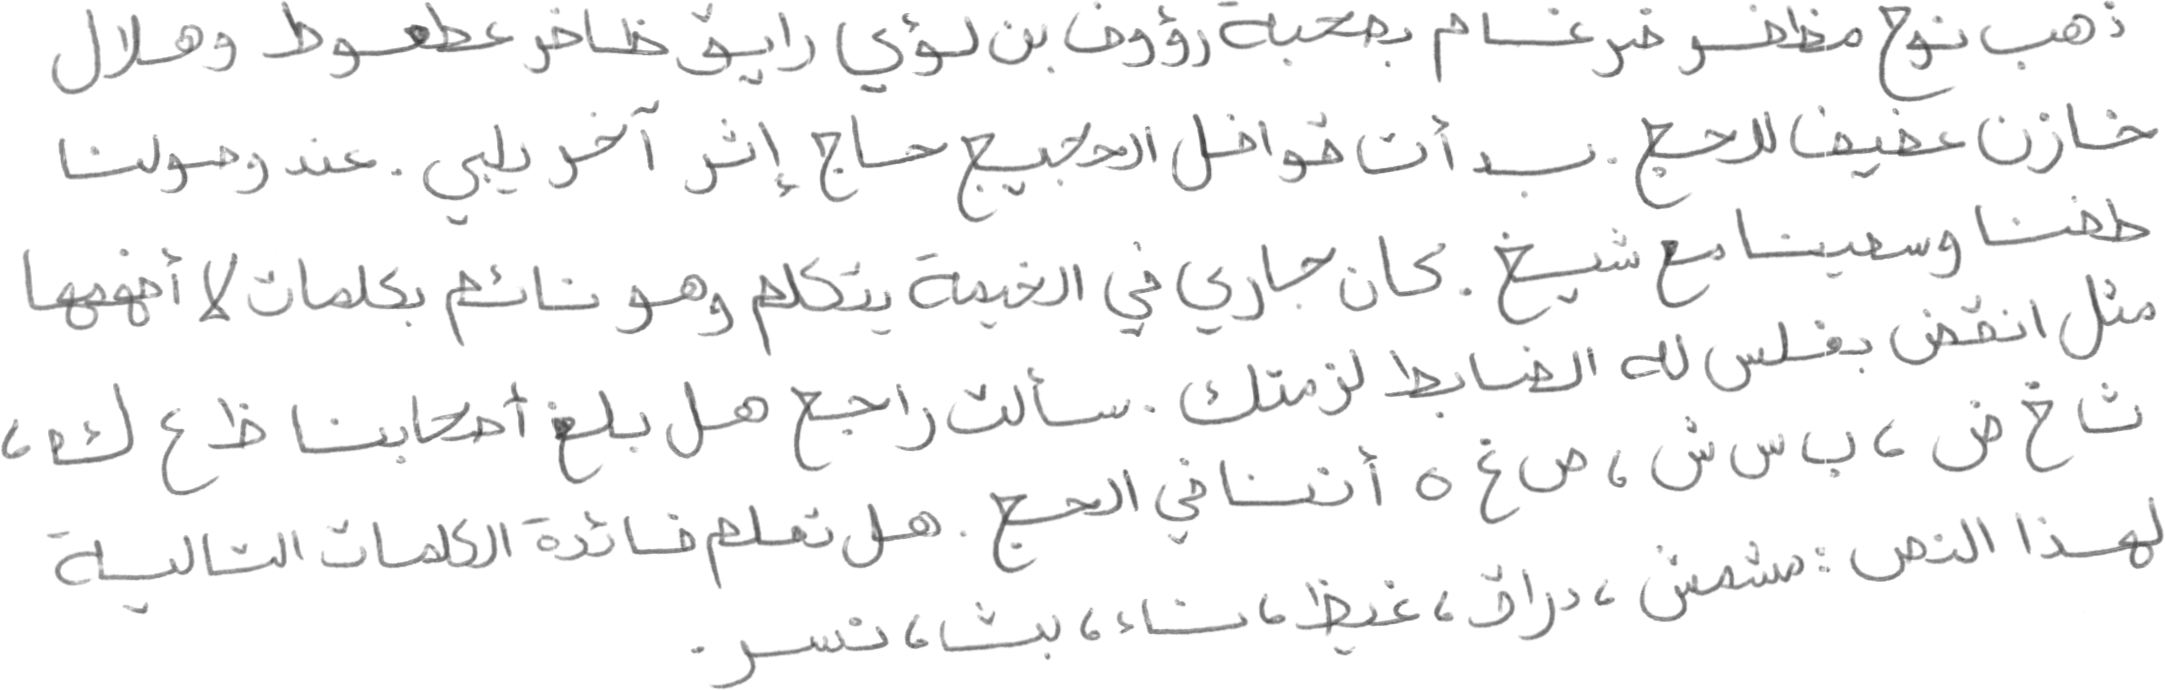 ذهب نوح مظفر ضرغام بصحبة رؤوف بن لؤي رايق ظافر عطعوط وهلال
خازن عفيف للحج. بدأت قوافل الحجيج حاج إثر آخر يلبي. عند وصولنا
طفنا وسعينا مع شيخ. كان جاري في الخيمة يتكلم وهو نائم بكلمات لا أفهمها
مثل انقض بفلس لله الضابط لزمتك. سألت راجح هل بلغ أصحابنا ظ ع ك ه،
ث خ ض، ب س ش، ص غ ه أننا في الحج. هل تعلم فائدة الكلمات التالية
لهذا النص: مشمش، دراق، غيظ، سناء، بث، نسر.